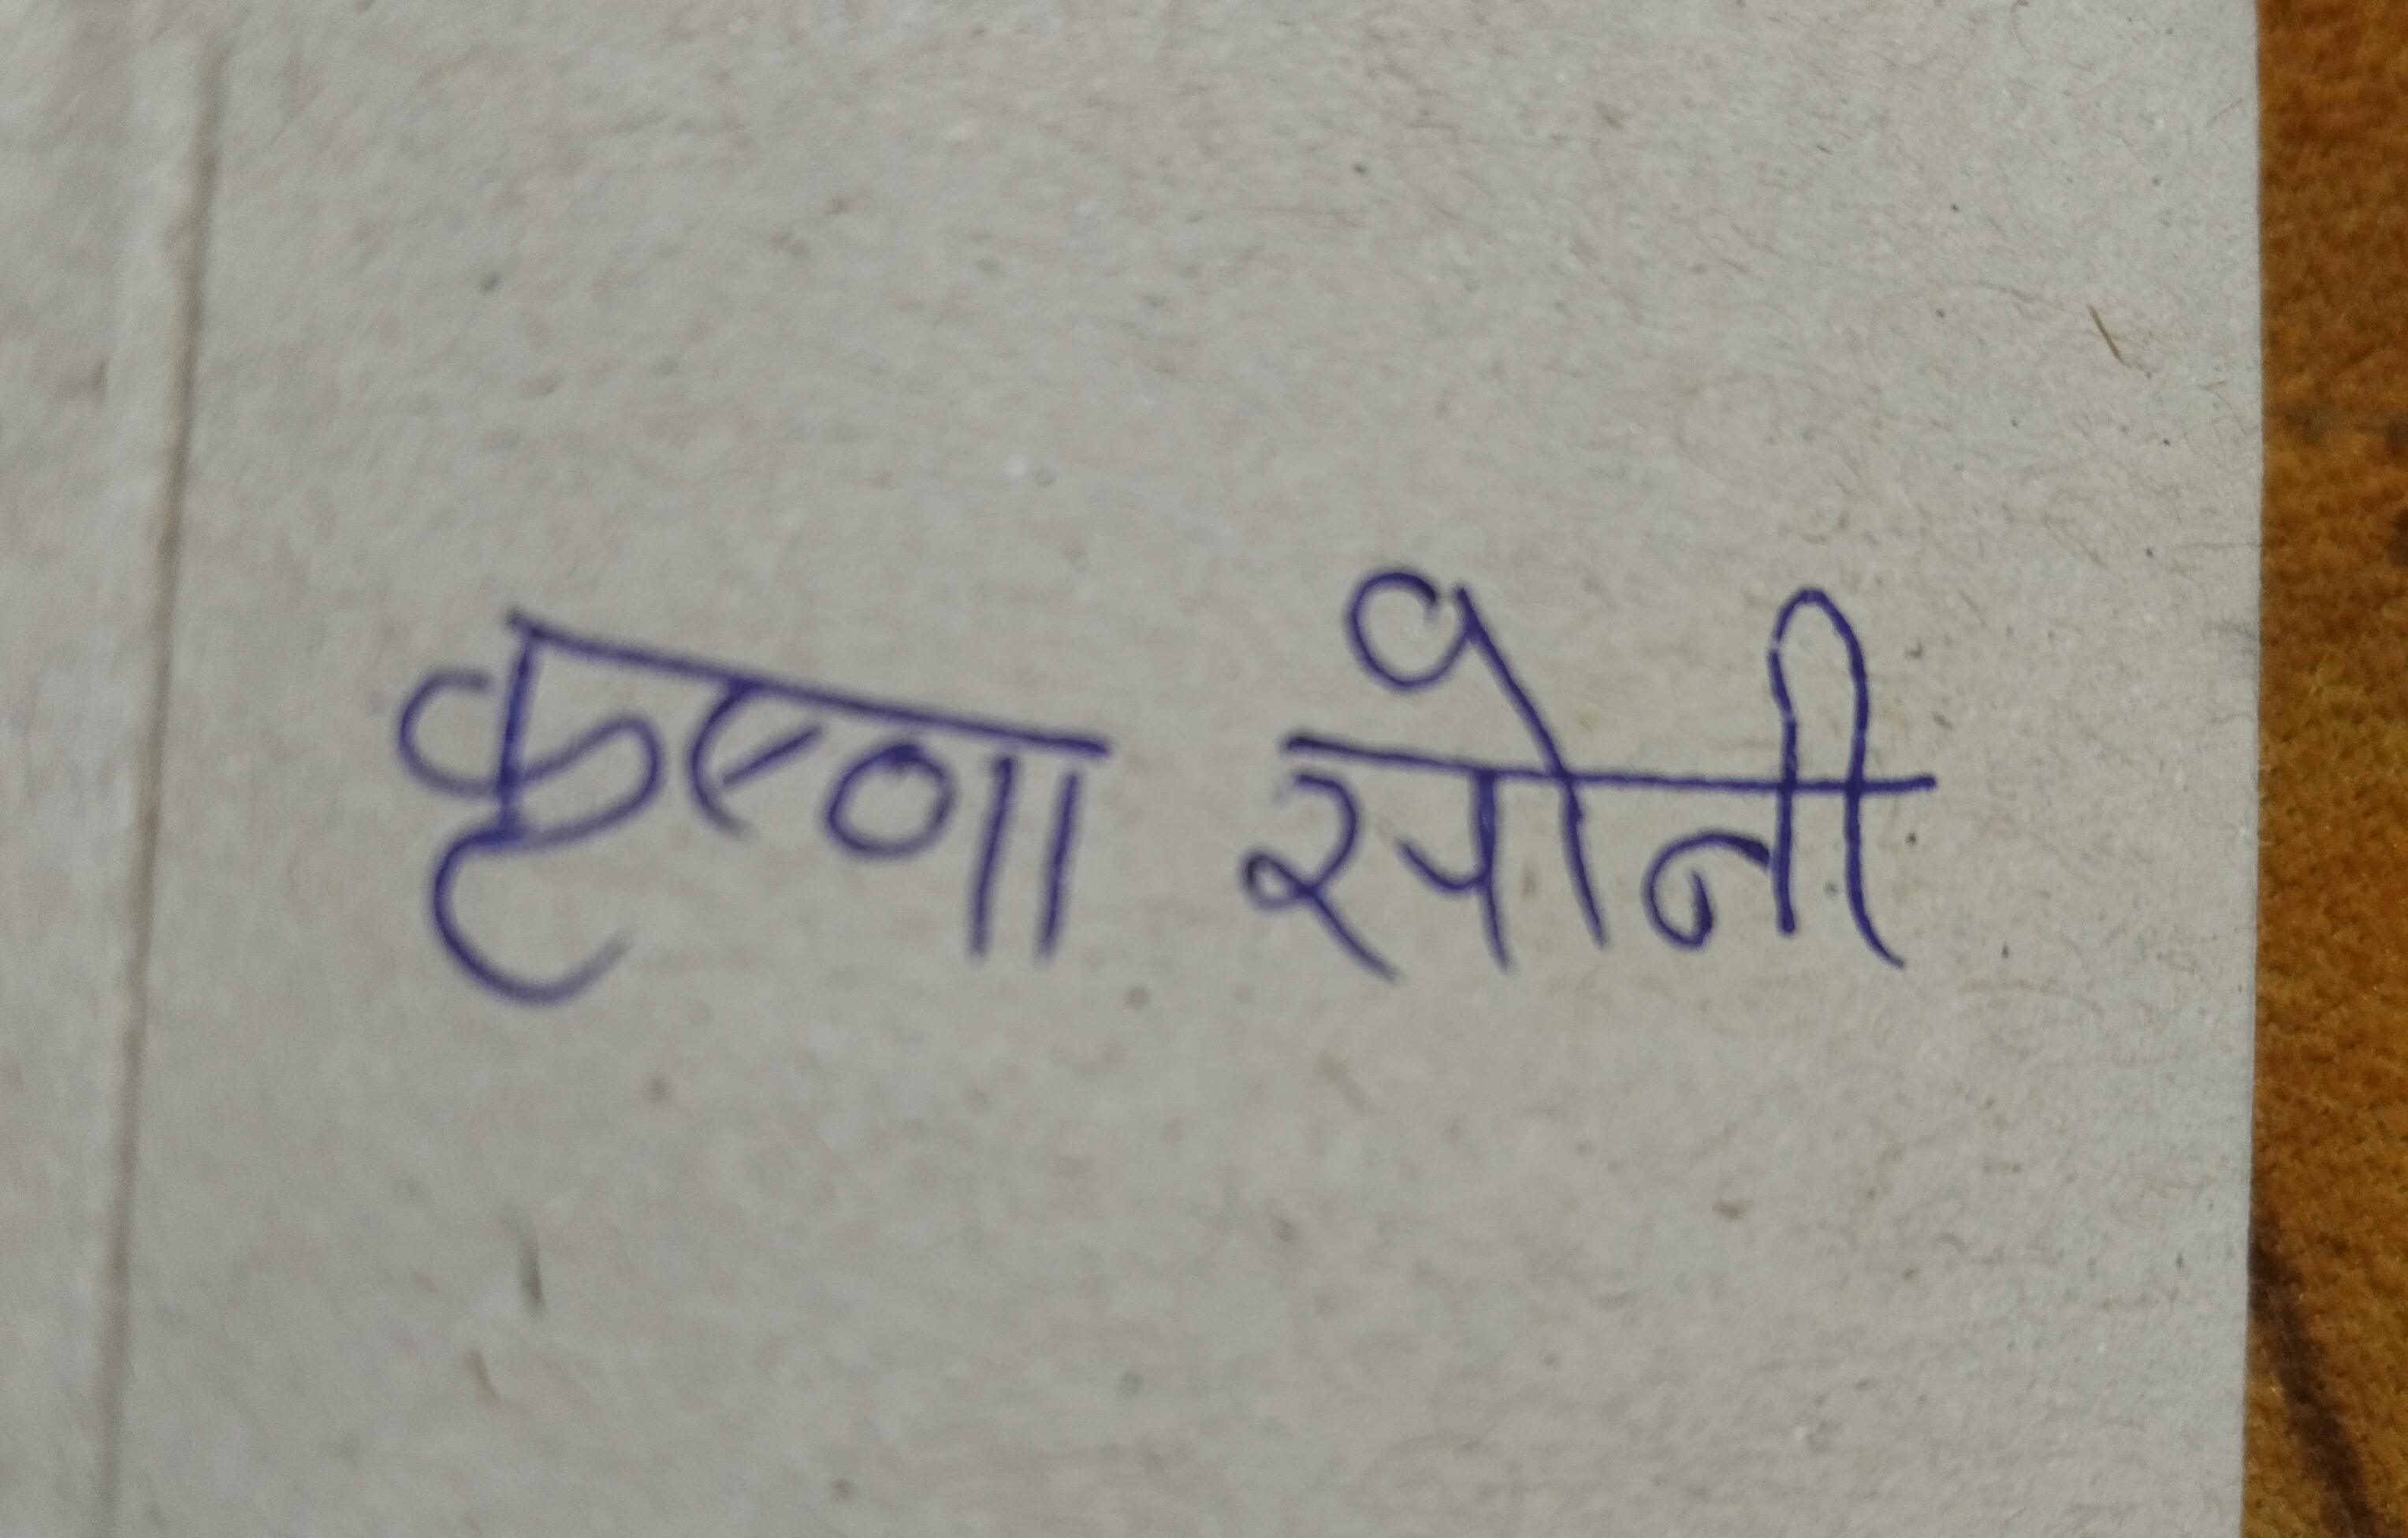 कृष्णा सोनी